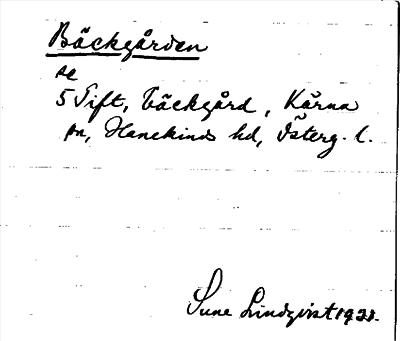 Bäckgården
se
5 Tift, Bäckgård, Kärna
sn, Hanekinds hd, Österg. l.
Sune Lindqvist 1921.